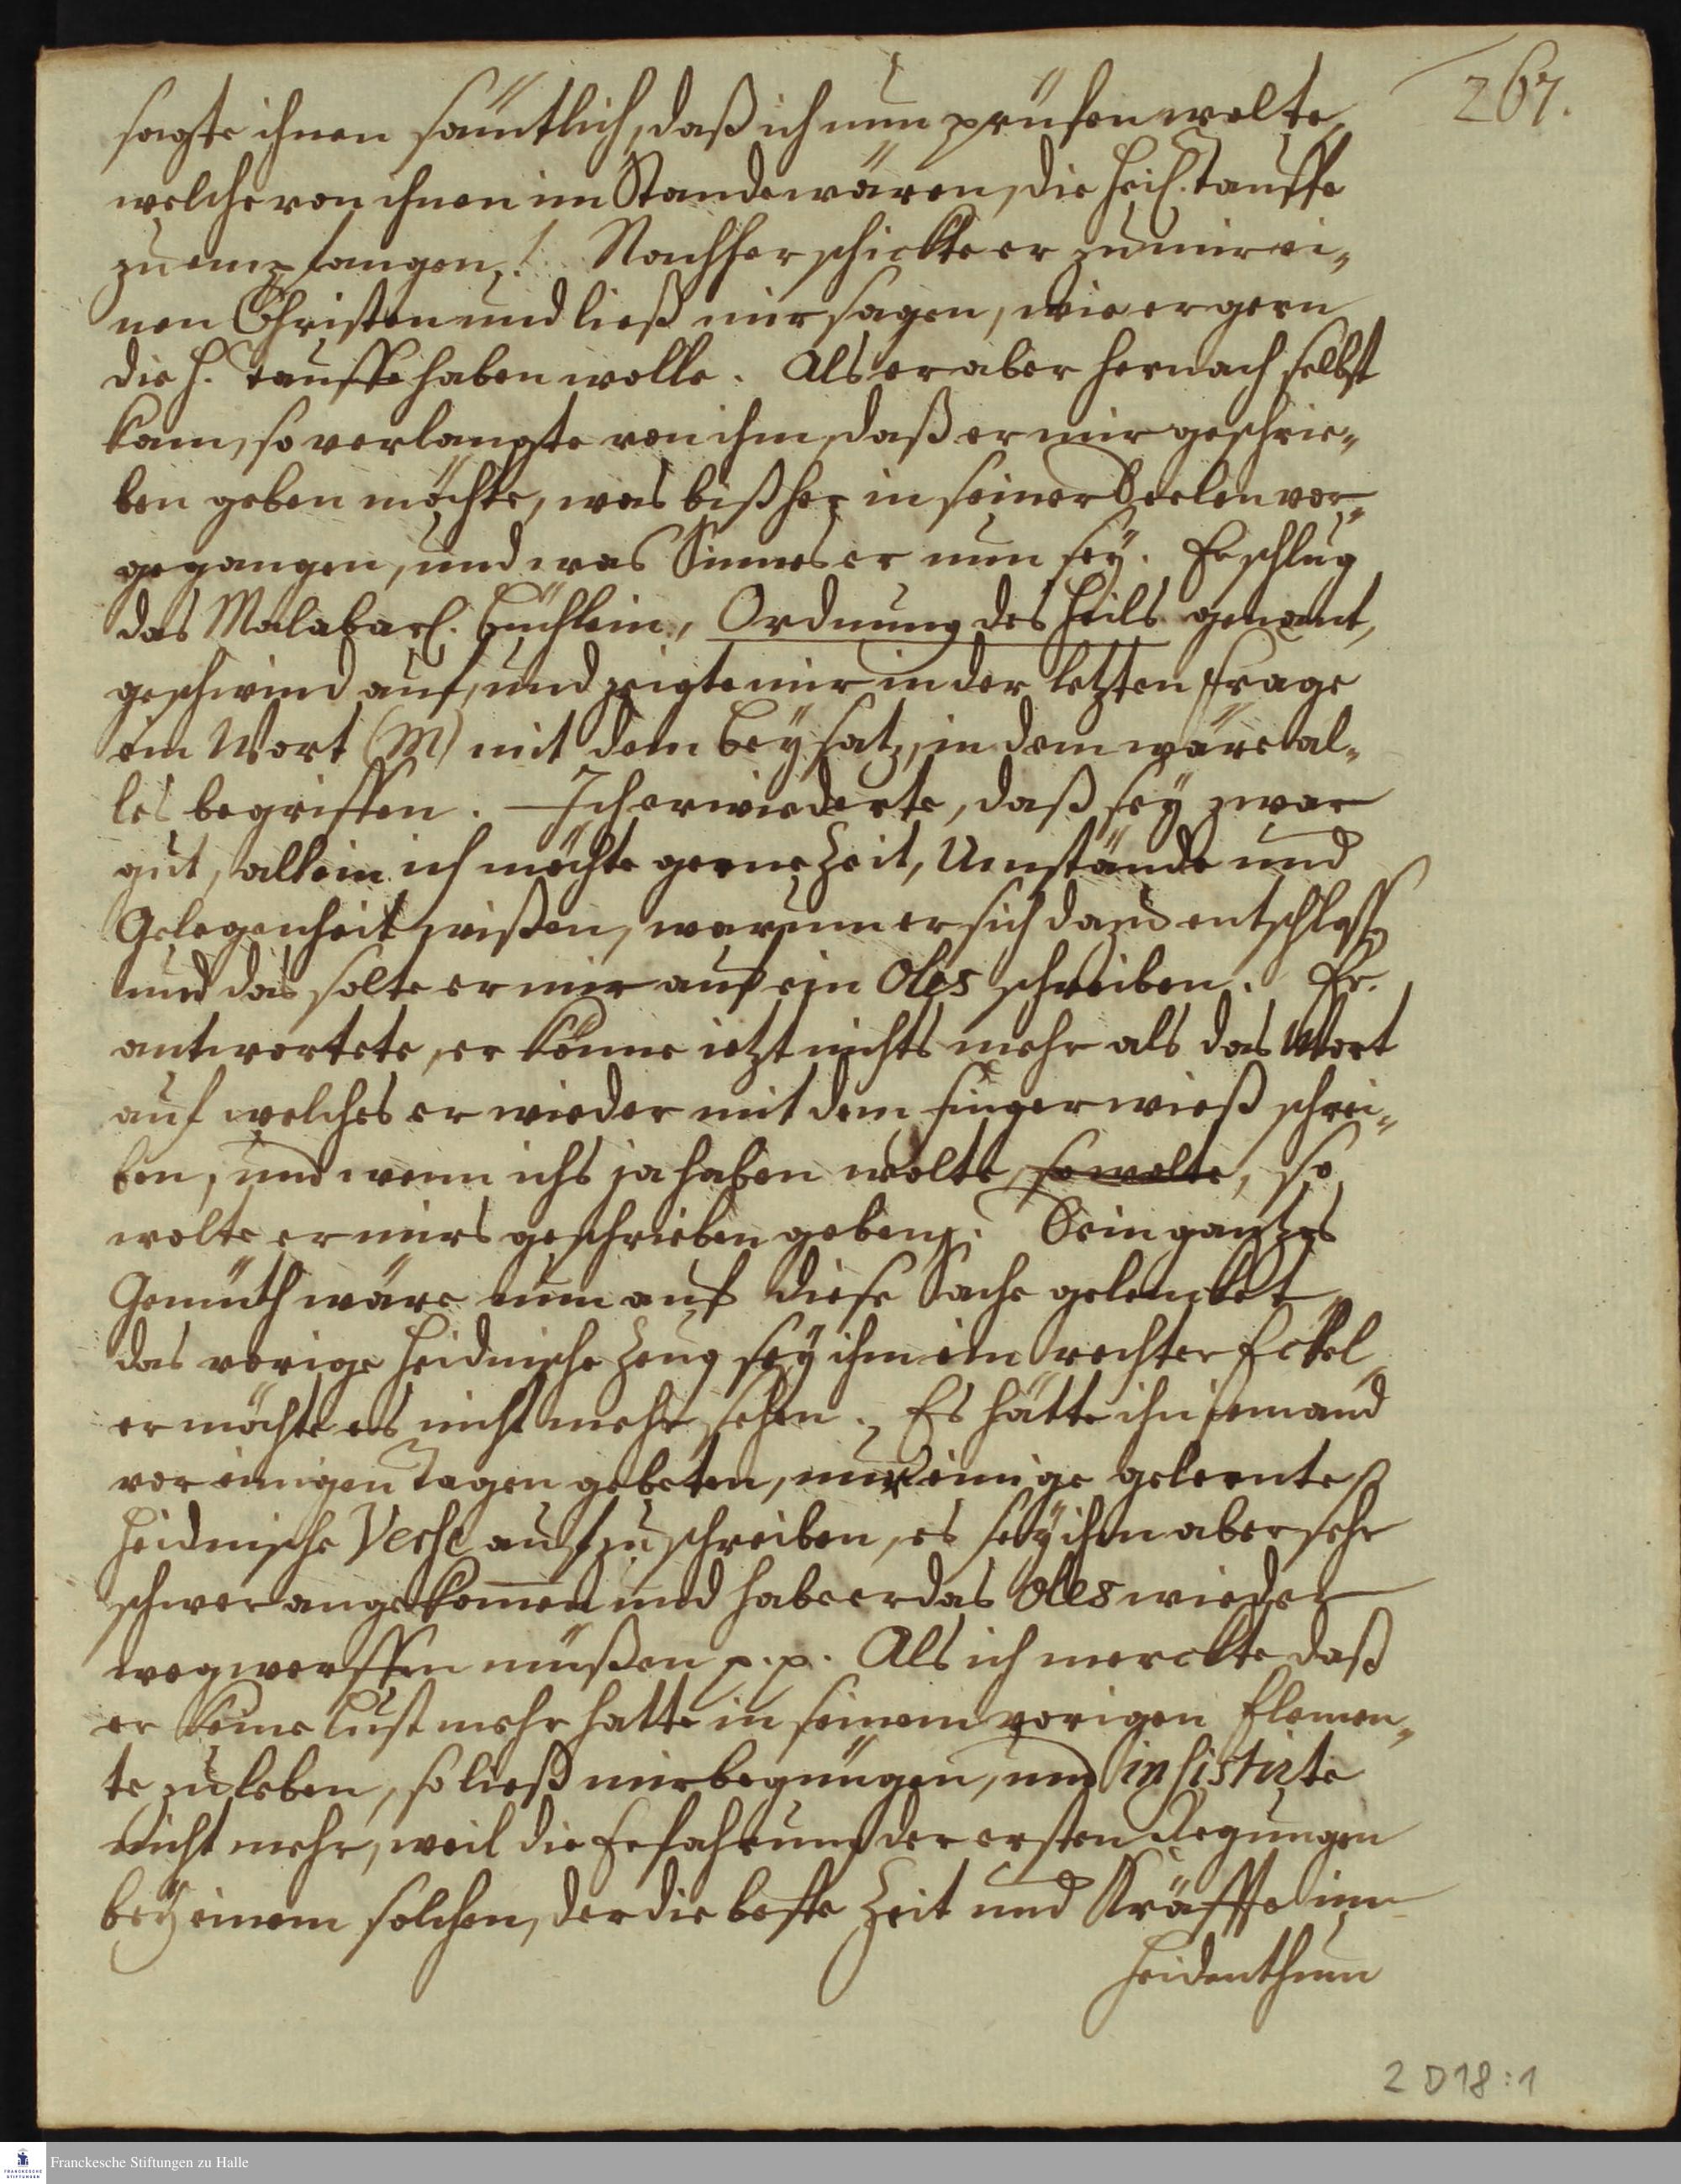 267.
sagte ihnen sämtlich, daß ich nun prüfen wolte,
welche von ihnen im Stande wären, die Heil. Tauffe
zu empfangen. Nachher schickte er zu mir ei„
nen Christen und ließ mir sagen, wie er gern
die H. Tauffe haben wolle. Als er aber hernach selbst
kam, so verlangte von ihm, daß er mir geschrie„
ben geben möchte, was bißher in seiner Seelen vor„
gegangen, und was Sinnes er nun sey. Er schlug
das Malabarl. Büchlein, Ordnung des Heils genant,
geschwind auf, und zeigte mir in der letzten Frage
ein Wort (M) mit dem Beysatz, in dem wäre al„
les begriffen. Ich erwiederte, daß sey zwar
gut, allein ich möchte gerne Zeit, Umstände und
Gelegenheit wißen, warum er sich dazu entschloss
und das solte er mir auf ein Oles schreiben. Er
antwortete, er könne ietzt nichts mehr als das Wort
auf welches er wieder mit dem Finger wieß schrei„
ben, und wenn ichs ja haben wolte, so wolte, so
wolte er mirs geschrieben geben. Sein gantzes
Gemüth wäre nun auf diese Sache gelencket,
das vorige Heidnische Zeug sey ihm ein rechter Eckel,
er möchte es nicht mehr sehen. Es hätte ihn jemand
vor einigen Tagen gebeten, nur einige gelernte
Heidnische Verse aufzuschreiben, es sey ihm aber sehr
schwer angekommen und habe er das Oles wieder
wegwerffen müßen p. p. Als ich merckte daß
er keine Lust mehr hatte in seinem vorigen Elemen„
te zu leben, so ließ mir begnügen, und insistirte
nicht mehr, weil die Erfahrung der ersten Regungen
bey einem solchen, der die beste Zeit und Kräffte im
Heidenthum
2 D18:1
Franckesche Stiftungen zu Halle